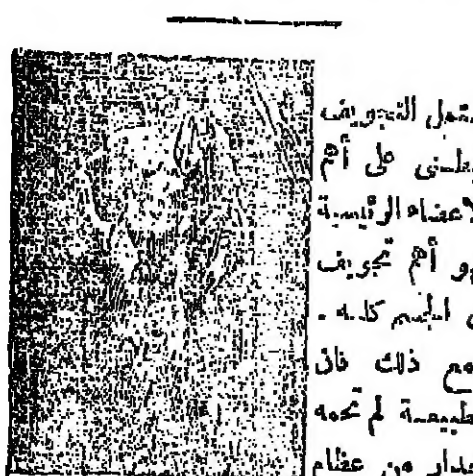 يشتمل التجويف
البطنى على أهم
الأعضاء الرئيسية
وهو أهم تجويف
فى الجسم كله .
ومع ذلك فان
الطبيعة لم تحمه
بجدار من عظام